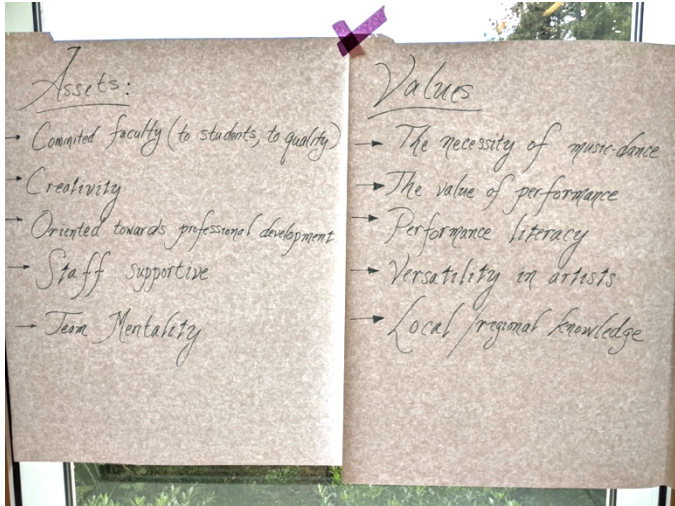 Assets:
→ Commited faculty (to students, to quality)
→ Creativity
→ Oriented towards professional development
→ Staff supportive
→ Team Mentality
Values
→ The necessity of music-dance
→ The value of performance
→ Performance literacy
→ Versatility in artists
→ Local/regional knowledge